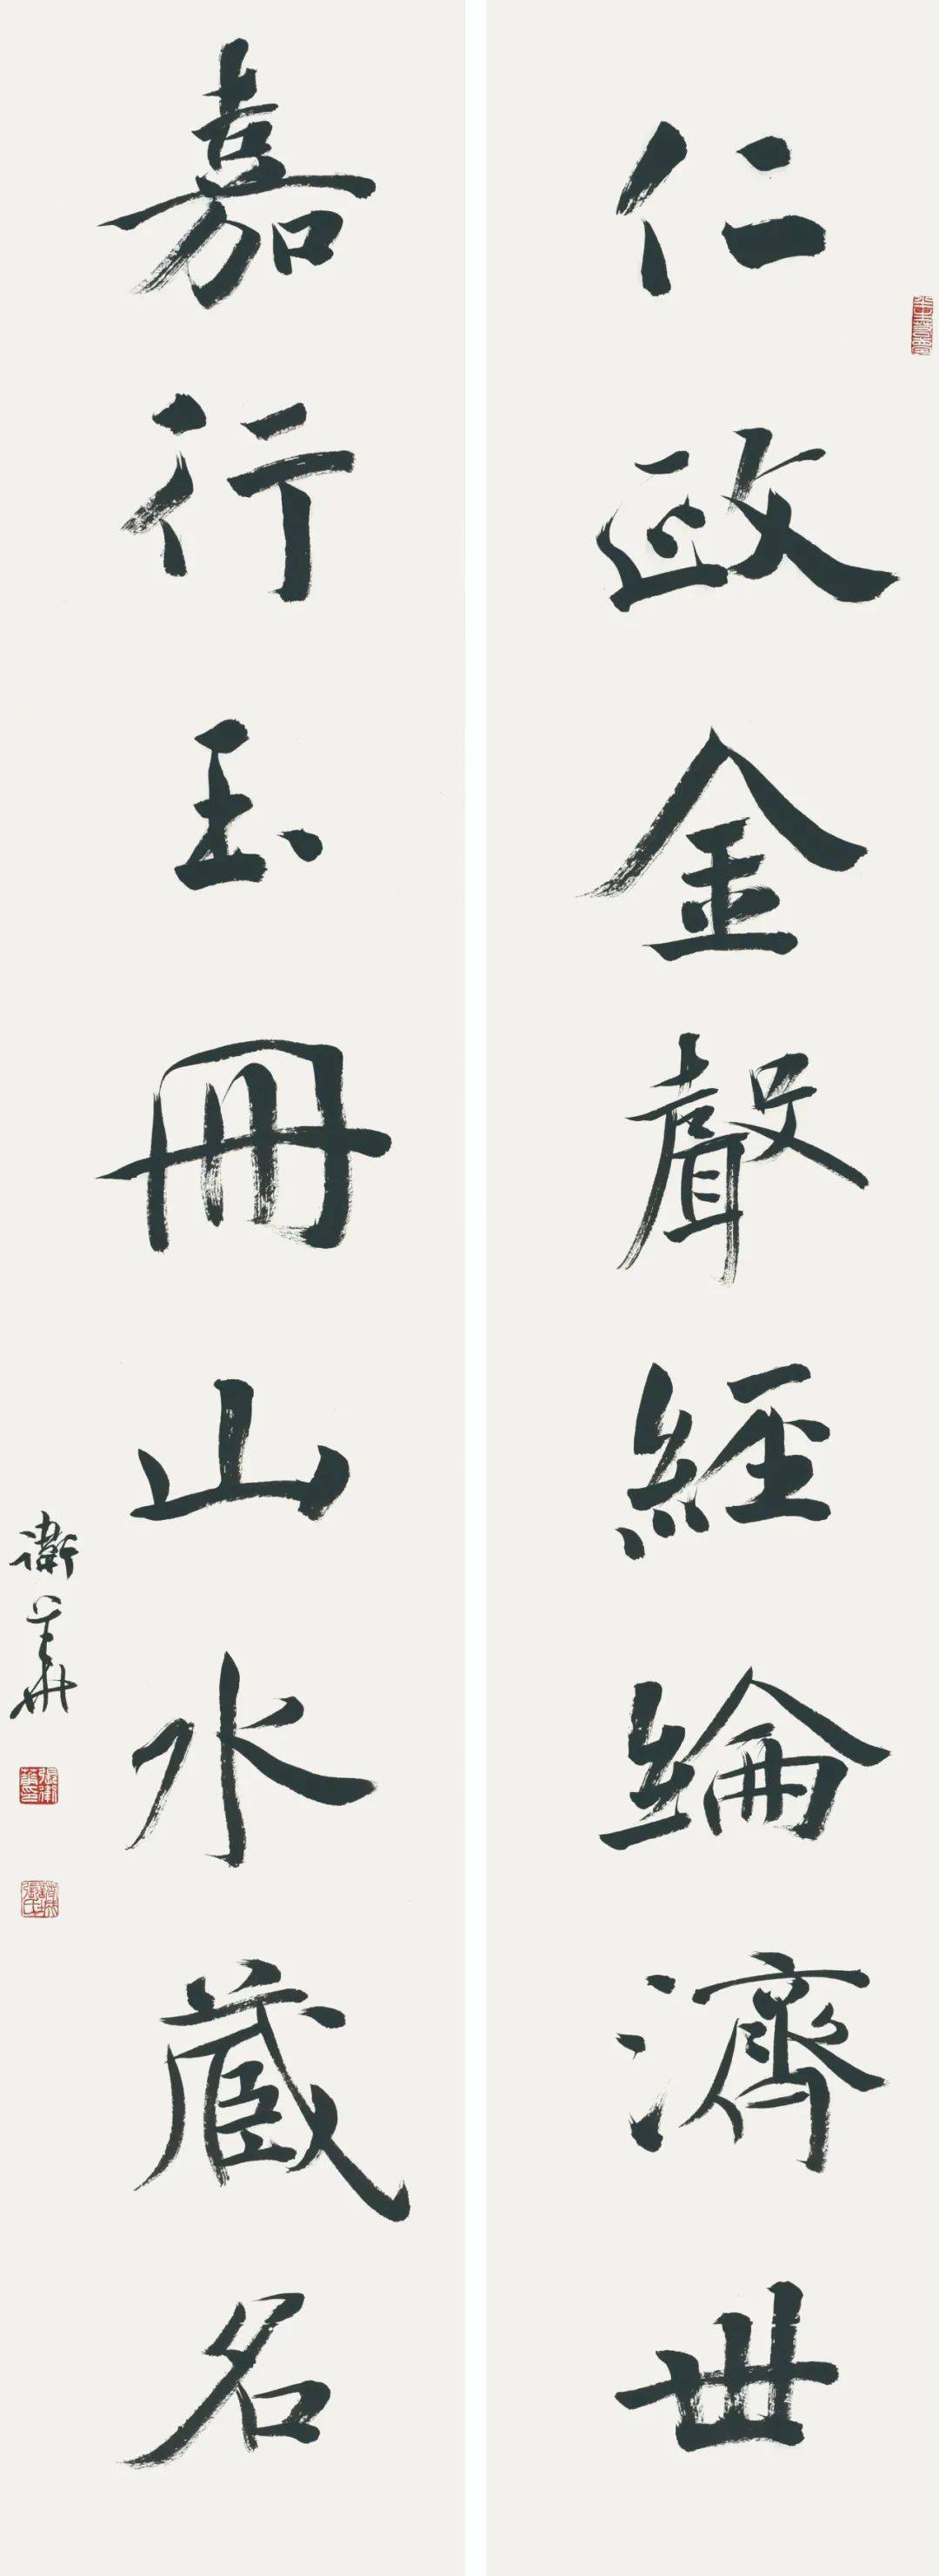 仁政金聲經綸濟世
嘉行玉冊山水藏名
衛華